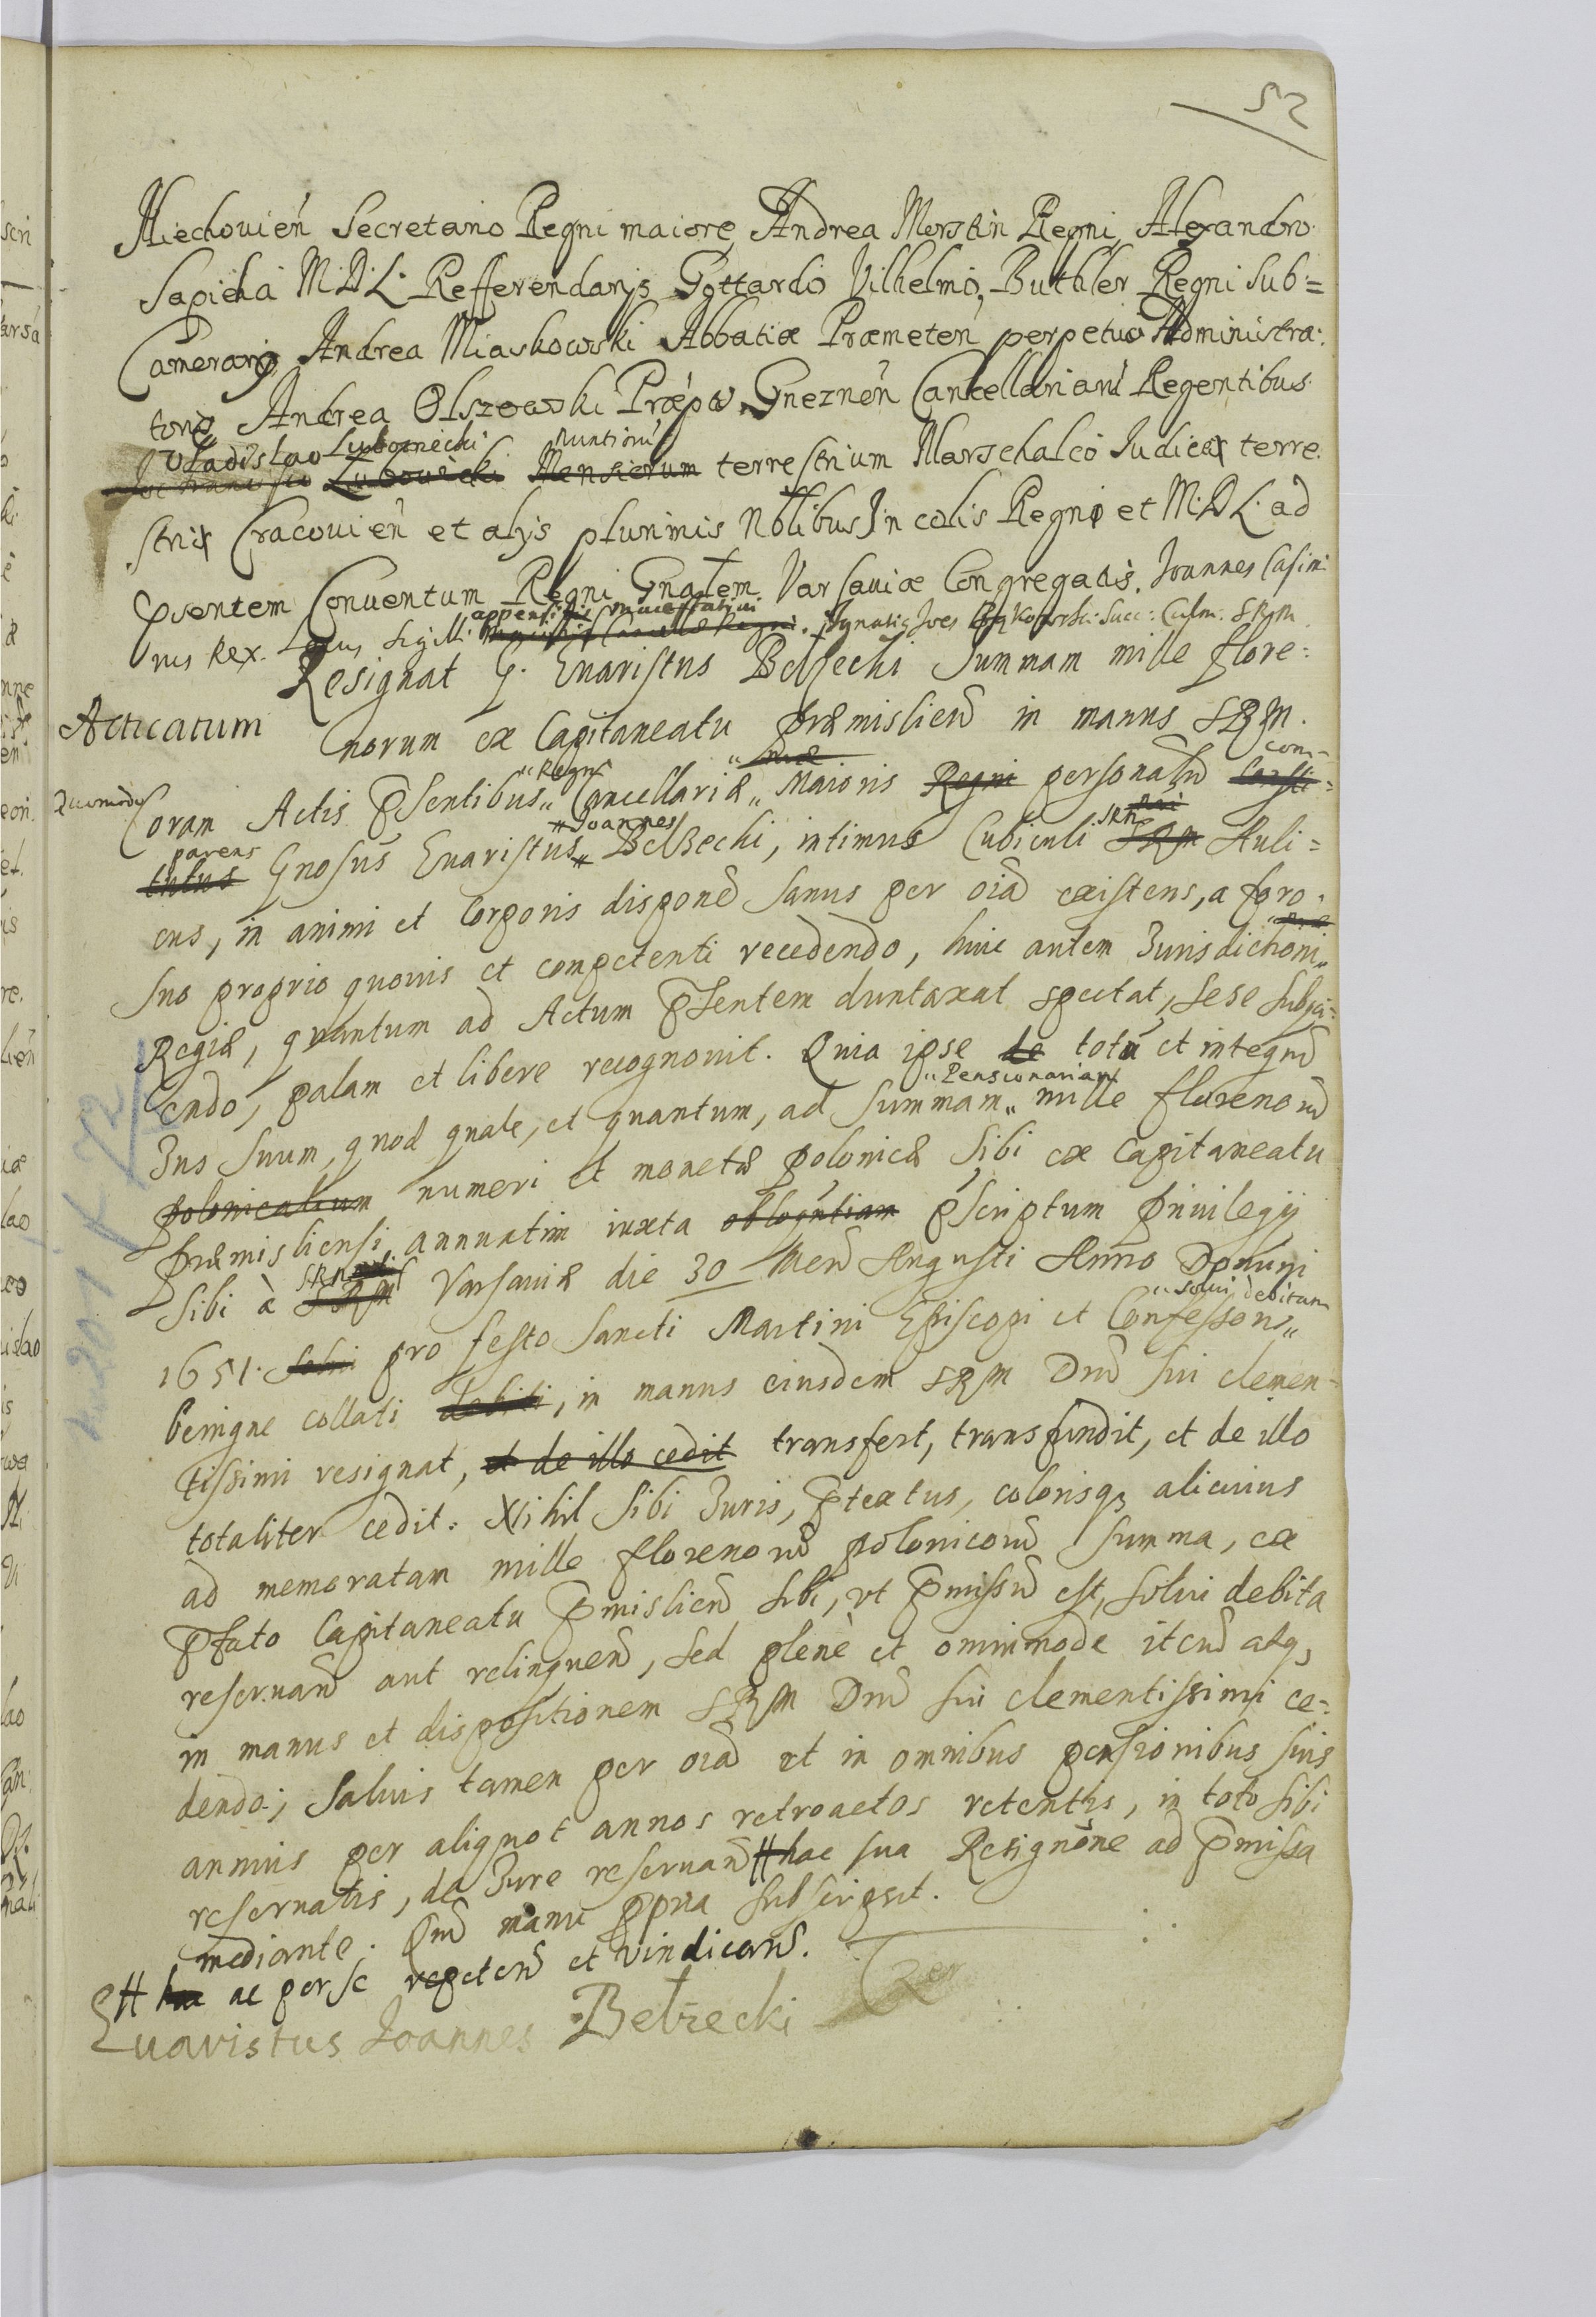 52
Miechouien Secretario Regni maiore, Andrea Morstin Regni, Alexandro
Sapieha M.D.L. Refferendarijs Gottardo Vilhelmo Buthler Regni Sub=
Camerario Andrea Miaskowski Abbatiæ Præmeten perpetuo Administra:
tore Andrea Olszowski Præpo Gneznen Cancellariarũ Regentibus
Vladislao Luboniecki Nuntiorũ
Lubowicki terrestrium Marschalco Iudice terre
stri Cracouien et alijs plurimis Nobilibus Incolis Regni et M.D.L. ad
pñsentem Conuentum Regni Gnalem Varsauiæ Congregatis. Ioannes Casimi
rus Rex. Locus Sigilli appensi Maiestatici. Succ: Culm. SRM
Resignat G. Euaristus Belzecki Summam mille flore=
Acticatum
norum ex Capitaneatu Præmislien in manus SRM.
Coram Actis pñsentibus Regni Cancellariæ Maioris Regni personalr com=
parens Gnosus Euaristus Joannes Belzecki, intimus Cubiculi SRM Auli=
cus, in animi et Corporis dispone sanus per oia existens, a foro
suo proprio quouis et competenti recedendo, huic autem Iurisdictioni
Regiæ, quantum ad Actum pñsentem duntaxat spectat, sese subijci=
endo, palam et libere recognouit. Quia ipse de totũ et integrũ
Ius suum, quod quale, et quantum, ad summam Pensionariam mille florenorũ
polonicalium numeri et monetæ polonicæ sibi ex Capitaneatu
Præmisliensi annuatim iuxta pscriptum Priuilegij
sibi à SRM Varsauiæ die 30 Mens Augusti Anno Domini
1651. solui pro festo Sancti Martini Episcopi et Confessoris solui debitam
benigne collati debiti, in manus eiusdem SRM Dni sui clemen=
tissimi resignat, et de illo cedit transfert, transfundit, et de illo
totaliter cedit: Nihil sibi Iuris, ptextus, colorisq, alicuius
ad memoratam mille florenorũ polonicorũ summa, ex
pfato Capitaneatu Pmislien sibi, vt pmissũ est, solui debita
reseruand aut relinquend, sed plenè et omnimode atq,
in manus et dispositionem SRM Dni sui clementissimi ce=
dendo; Saluis tamen per oia et in omnibus pensionibus suis
annuis per aliquot annos retroactos retentis, in toto sibi
reseruatis, de Iure reseruand # hac sua Resignõne ad pmissa
mediante. Qui manu ppria subscripsit.
# ac per se repetend et vindicand.
Euaristus Joannes Bełzecki